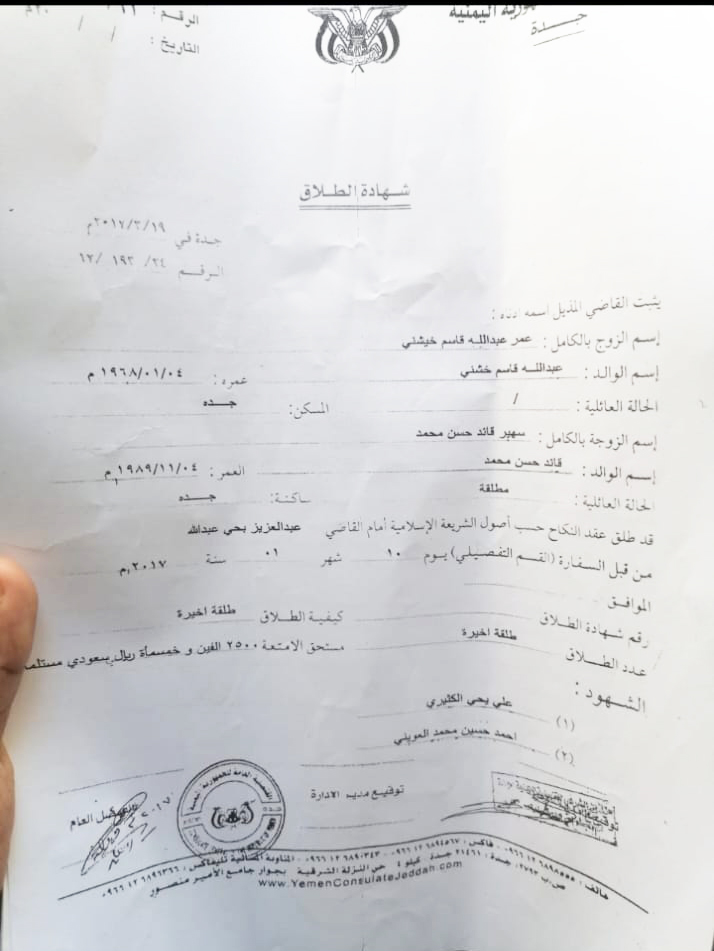 الجمهورية اليمنية
جـــدة
الرقم :
التاريخ : / /
شـهادة الطـلاق
جـدة في ٢٠١٧/٣/١٩م
الـرقـــم ٢٤/ ١٩٣ /١٢
يثبت القاضي المذيل اسمه ادناه :
إسـم الزوج بالكامل : عمر عبدالله قاسم خيشني
إسـم الوالـد : عبدالله قاسم خشني عمره : ١٩٦٨/٠١/٠٤ م
الحالة العائلية : / المسكن: جـــده
إسـم الزوجة بالكامل : سهير قائد حسن محمد
إسـم الوالد : قائد حسن محمد العمر : ١٩٨٩/١١/٠٤م
الحالة العائلية : مطلقة ساكنة: جـــده
قد طلق عقد النكاح حسب أصول الشريعة الإسلامية أمام القاضي عبدالعزيز يحي عبدالله
مـن قبل السـفارة (القـسـم التفـصـيلي) يـوم ١٠ شهر ٠١ سنة ٢٠١٧م
الموافـق
رقم شهادة الطلاق كيفية الطـلاق طلقة اخيرة
عـدد الطــلاق طلقة اخيرة مستحق الامتعة ٢٥٠٠ الفين و خمسماة ريال سعودي
الشـــهود :
(١) علي يحي الكثيري
(٢) احمد حسين محمد العويني
توقيع مدير الادارة
العام
هاتف : ٠٩٦٦ ١٢ ٦٨٩٨٥٥٥ - فاكس :
ص.ب ٢٧٩٣ جـدة : ٢١٤٦١ جـدة كيلو ٤ حي النـزلة الشـرقية بـجوار جامـع الأميـر منـصـور
www.YemenConsulateJeddah.com